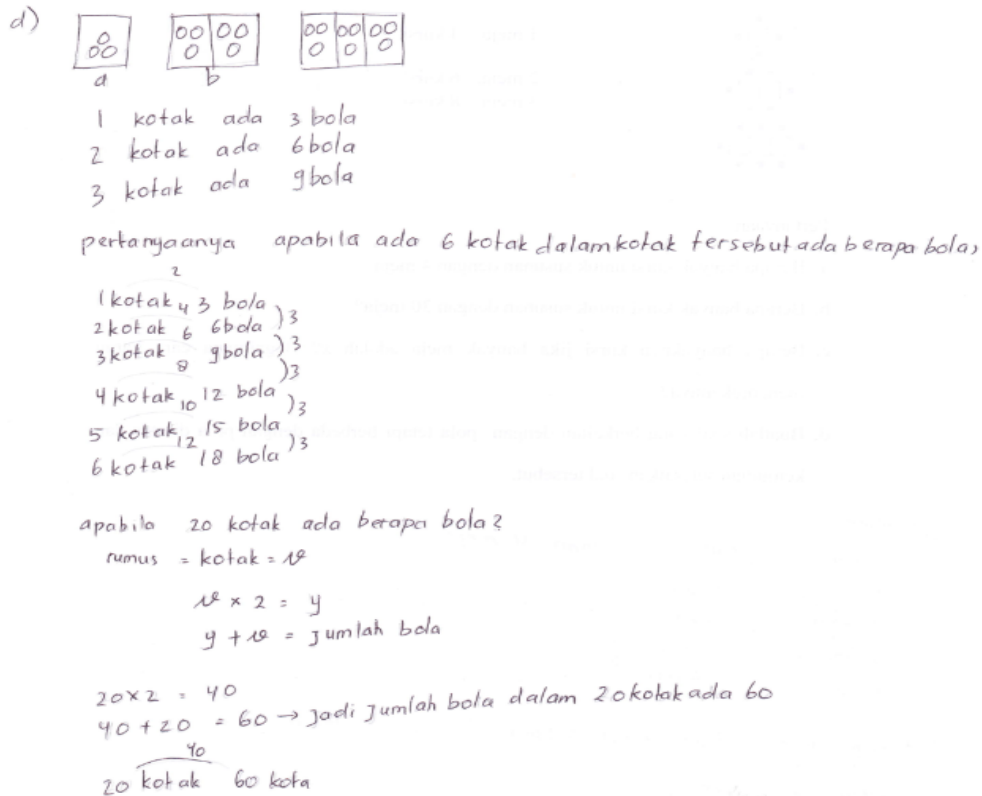 d)
a b
1 kotak ada 3 bola
2 kotak ada 6 bola
3 kotak ada 9 bola
pertanyaanya apabila ada 6 kotak dalam kotak tersebut ada berapa bola,
2
1 kotak 4 3 bola
2 kotak 6 6 bola )3
3 kotak 8 9 bola )3
)3
4 kotak 10 12 bola
)3
5 kotak 12 15 bola
6 kotak 18 bola )3
apabila 20 kotak ada berapa bola?
rumus = kotak = v
v × 2 = y
y + v = jumlah bola
20 × 2 = 40
40 + 20 = 60 → jadi jumlah bola dalam 20 kotak ada 60
40
20 kotak 60 kota